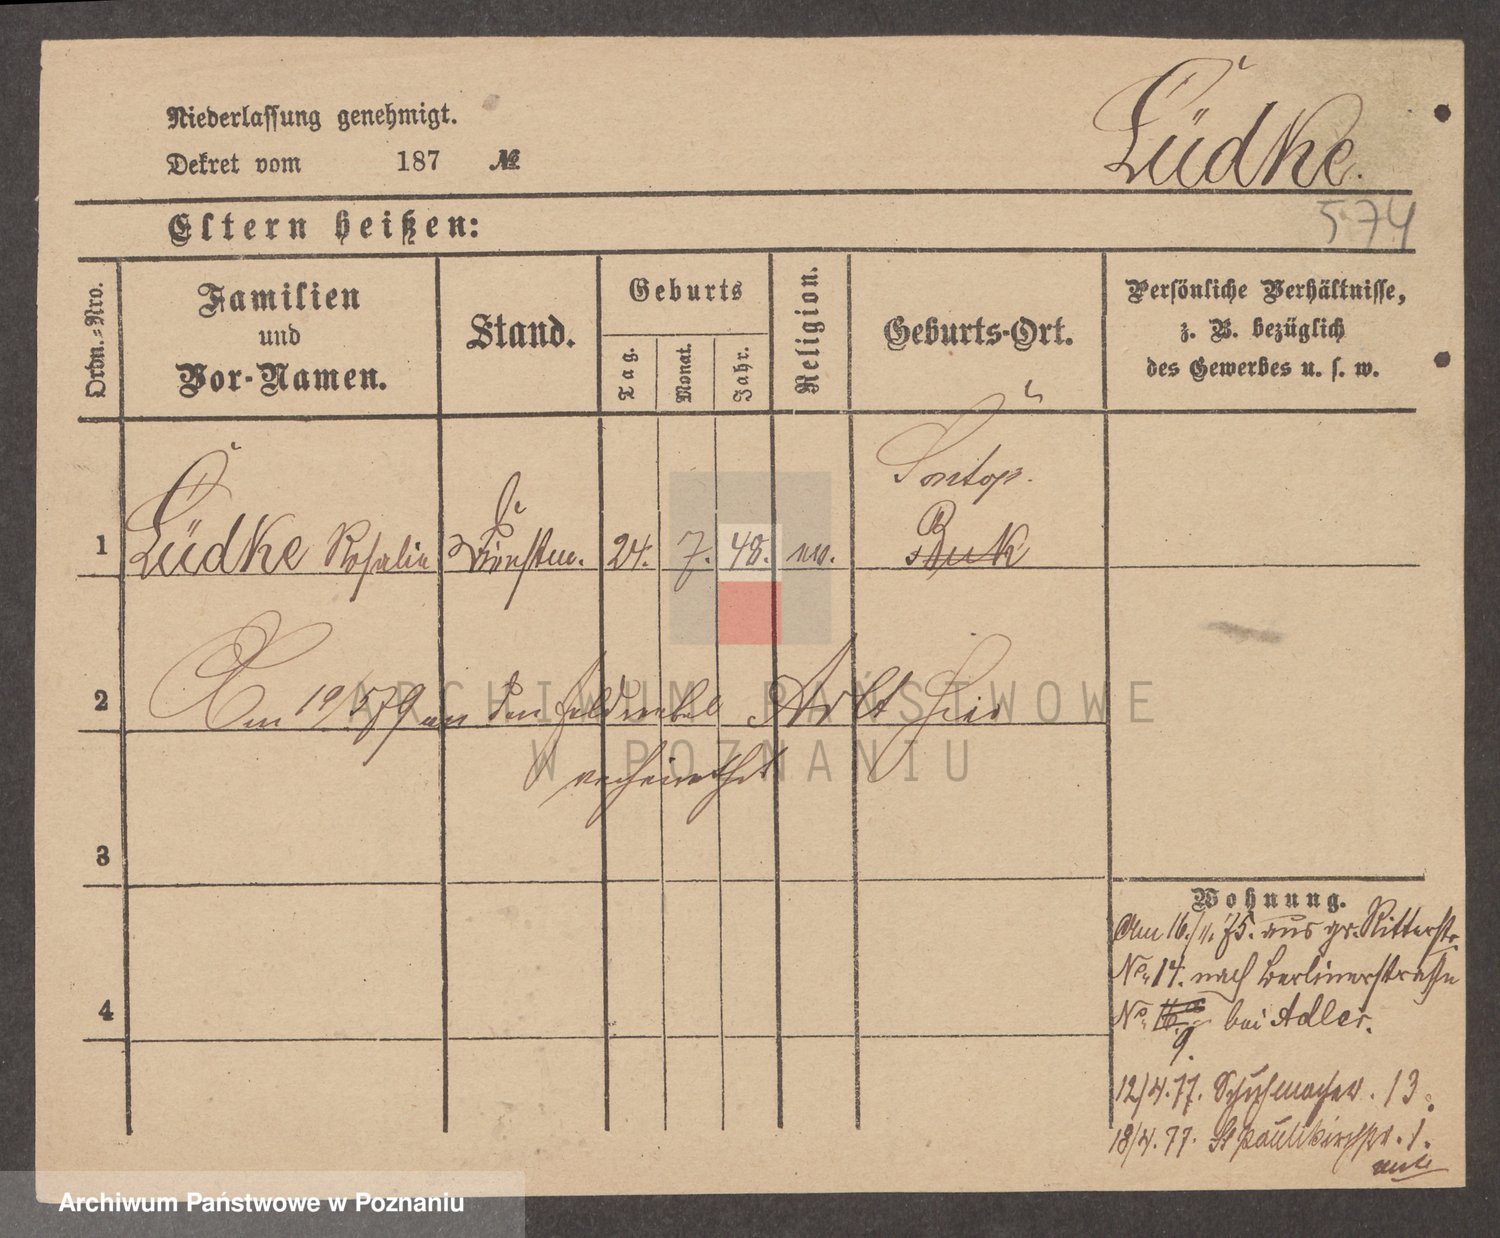 Niederlassung genehmigt.
Dekret vom 187 №
Lüdke.
574
Eltern heißen:
Ordn.-Nro.
Familien
und
Vor-Namen.
Stand.
Geburts
Tag.
Monat.
Jahr.
Religion.
Geburts-Ort.
Persönliche Verhältnisse,
z. B. bezüglich
des Gewerbes u. s. w.
Sontop.
1 Lüdke Rosalie Dienstm. 24. 7. 48. ev. Buk
2 Am 19/8 79 an den Feldwebel Arlt hier
verheirathet
3
4
Wohnung.
Am 16./11. 75. aus gr. Ritterstr.
No. 14. nach Berlinerstraße
No. 16 bei Adler.
9.
12/4. 77. Schuhmacher. 13.
18/4. 77. St Paulikirchstr. 1.
ARCHIWUM PAŃSTWOWE
W POZNANIU
Archiwum Państwowe w Poznaniu